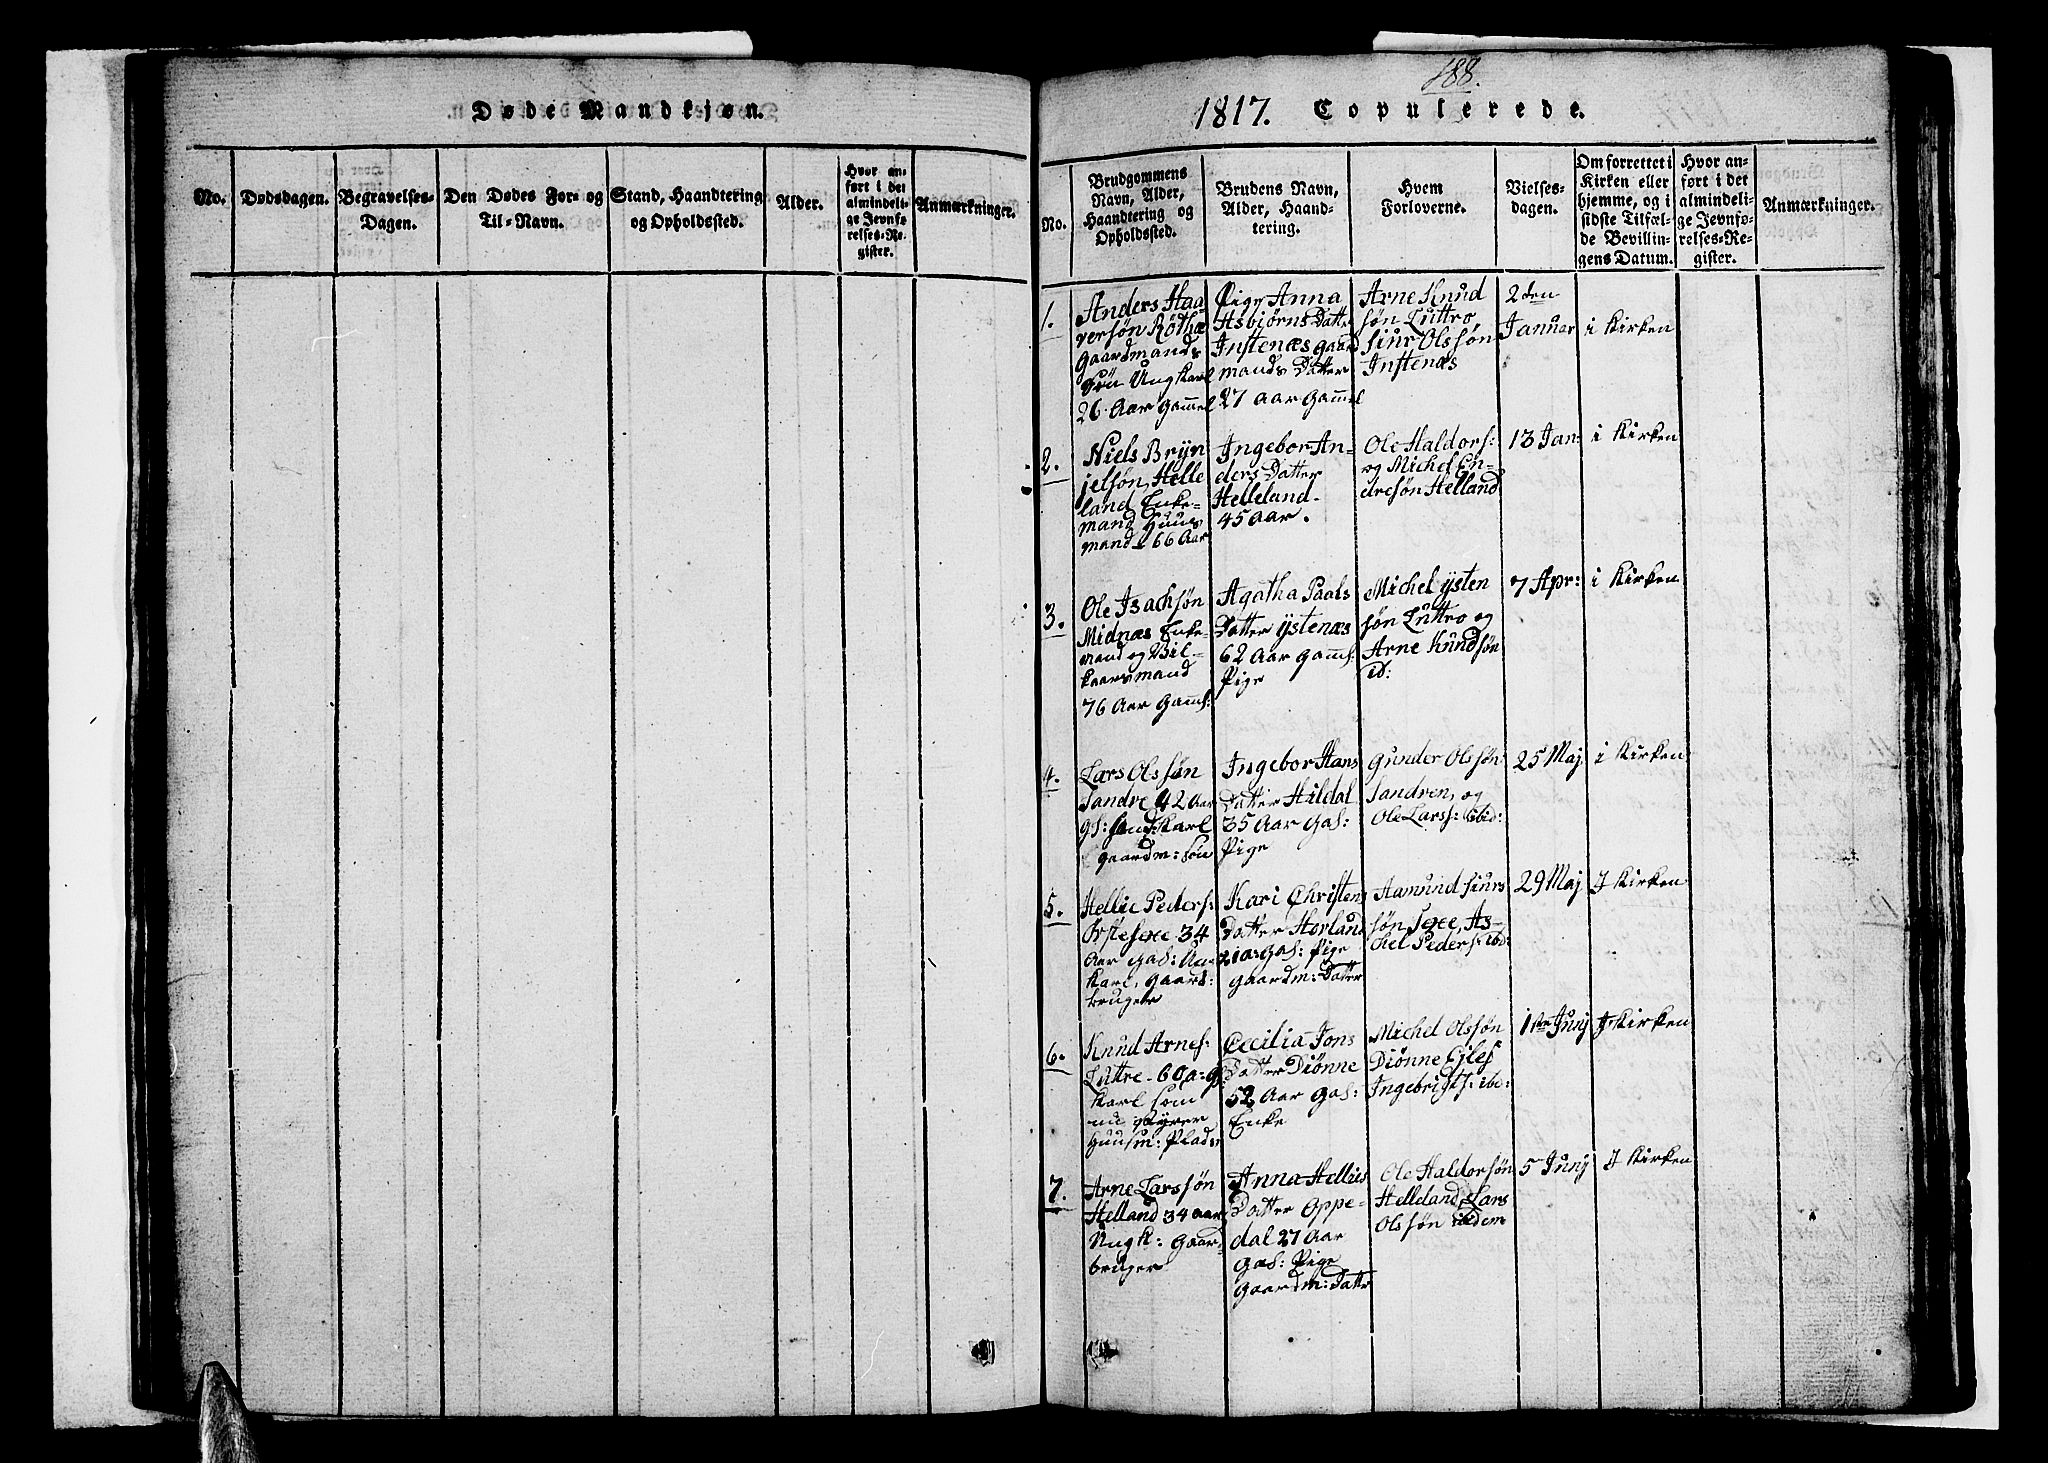 Døde Mandkjøn.
No.
Dødsdagen.
Begravelses-
Dagen.
Den Dødes For- og
Til-Navn.
Stand, Haandtering
og Opholdssted.
Alder.
Hvor an-
ført i det
almindeli-
ge Jevnfø-
relses-Re-
gister.
Anmærkninger.
188.
1817. Copulerede.
No.
Brudgommens
Navn, Alder,
Haandtering og
Opholdssted.
Brudens Navn,
Alder, Haand-
tering.
Hvem
Forloverne.
Vielses-
dagen.
Om forrettet i
Kirken eller
hjemme, og i
sidste Tilfæl-
de Bevillin-
gens Datum.
Hvor an-
ført i det
almindeli-
ge Jevnfø-
relses-Re-
gister.
Anmærkninger.
1.
Anders Haa
versøn Røthe
gaardmands
Søn Ungkarl
26 Aar gammel
Pige Anna
Asbiørns Datter
Instenæs gaard
mands Datter
27 aar gammel
Arne Knud
søn Luttro
Siur Olssøn
Instenæs
2den
Januar
i Kirken
2.
Niels Bryn
jelsøn, Helle
land Enke-
mand Huus
mand 66 Aar
Ingebor An-
ders Datter
Helleland
45 aar.
Ole Haldors:
og Michel En-
dresøn Helland
13 Jan:
i Kirken
3.
Ole Isachsøn
Midnæs Enke-
mand og Vil-
kaarsmand
76 Aar gaml:
Agatha Paals
Datter ystenæs
62 Aar gaml:
Pige
Michel ysten
søn Luttro og
Arne Knudsøn
id:
7 Apr:
i Kirken
4.
Lars Olssøn
Sandre 42 Aar
gl: Karl
gaardm: søn
Ingebor Hans
Datter Hildal
35 Aar gal:
Pige
Gunder Olssøn
Sandven, og
Ole Larss: ibid:
25 Maj
i Kirken
5.
Hellie Peders:
34
Aar gal: Un-
karl, gaard:
bruger
Kari Christens
Datter Horland
21 a: gal: Pige
gaardm: Datter
Aamund Siurs
søn Sexe, As-
chel Peders: ibd:
29 Maj
I Kirken
6.
Knud Arnes:
Luttro 60 a: g:
Karl som
nu
Huusm: Plads
Cecilia Jons
Datter Diønne
52 Aar gal:
Enke
Michel Olssøn
Diønne Eilef
Ingebrigts: ibe:
1ste Junij
I Kirken
7.
Arne Larssøn
Helland 34 aar
Ungk: gaard-
bruger
Anna Hellies
Datter Oppe-
dal 27 Aar
gal: Pige
gaardm: Datter
Ole Haldorsøn
Helleland Lars
Olssøn ibidem
5 Junij
I Kirken